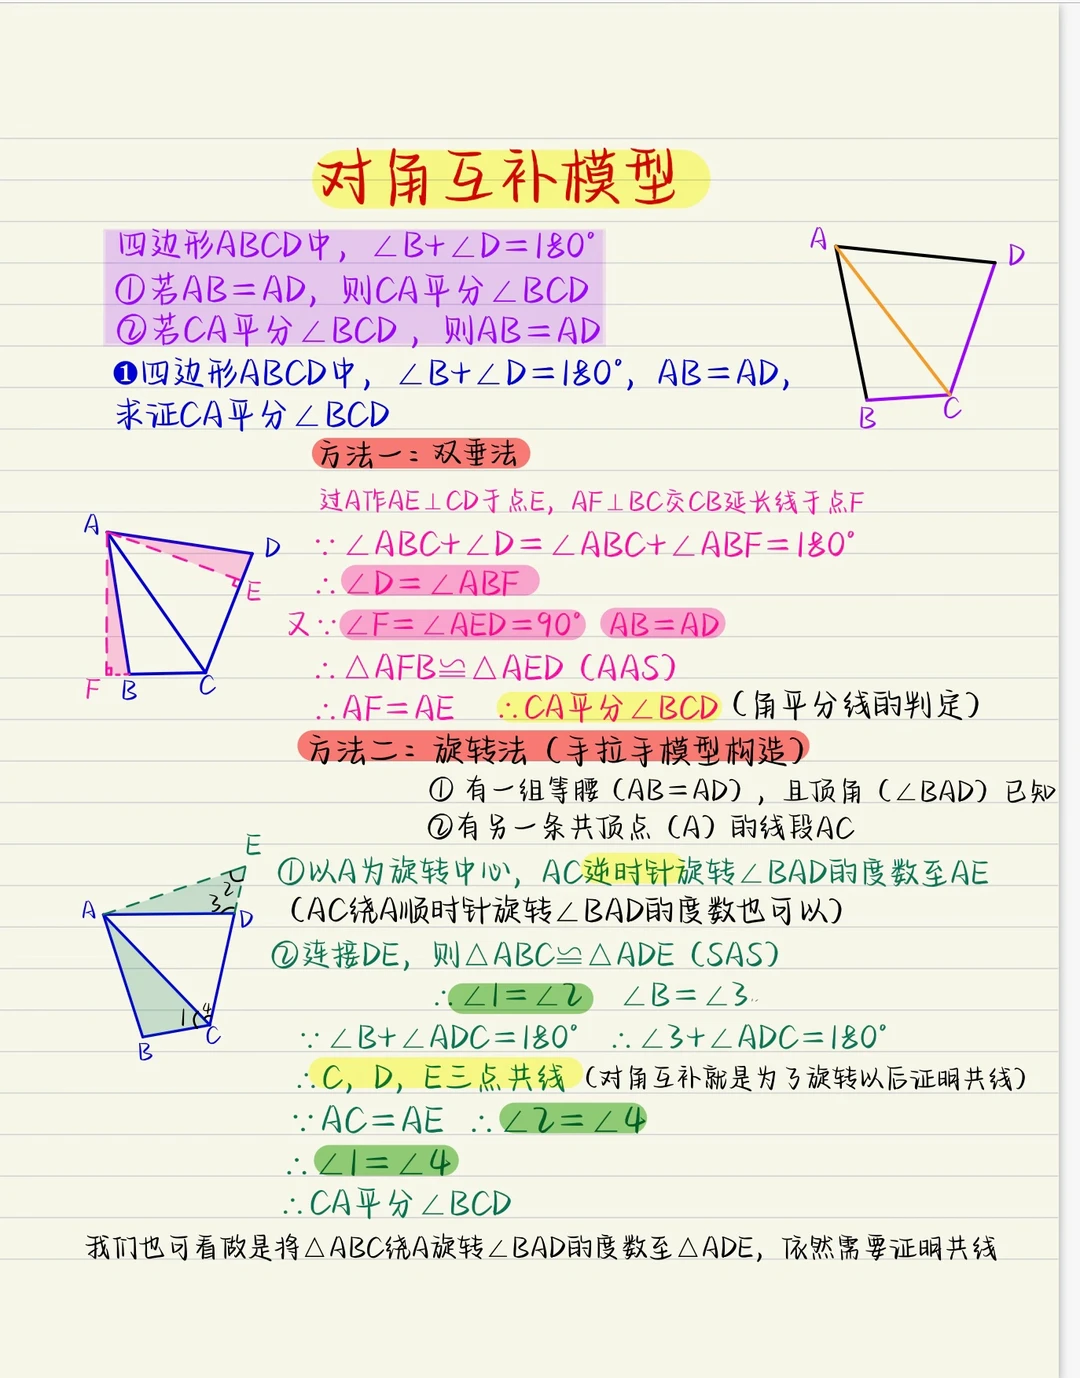 对角互补模型
四边形ABCD中，∠B+∠D=180°
①若AB=AD，则CA平分∠BCD
②若CA平分∠BCD，则AB=AD
A
D
B
C
❶四边形ABCD中，∠B+∠D=180°，AB=AD，
求证CA平分∠BCD
方法一：双垂法
过A作AE⊥CD于点E，AF⊥BC交CB延长线于点F
A
D
E
F
B
C
∵∠ABC+∠D=∠ABC+∠ABF=180°
∴∠D=∠ABF
又∵∠F=∠AED=90° AB=AD
∴△AFB≌△AED（AAS）
∴AF=AE ∴CA平分∠BCD（角平分线的判定）
方法二：旋转法（手拉手模型构造）
①有一组等腰（AB=AD），且顶角（∠BAD）已知
②有另一条共顶点（A）的线段AC
E
2
3
A
D
1
4
C
B
①以A为旋转中心，AC逆时针旋转∠BAD的度数至AE
（AC绕A顺时针旋转∠BAD的度数也可以）
②连接DE，则△ABC≌△ADE（SAS）
∴∠1=∠2 ∠B=∠3
∵∠B+∠ADC=180° ∴∠3+∠ADC=180°
∴C，D，E三点共线（对角互补就是为了旋转以后证明共线）
∵AC=AE ∴∠2=∠4
∴∠1=∠4
∴CA平分∠BCD
我们也可看做是将△ABC绕A旋转∠BAD的度数至△ADE，依然需要证明共线